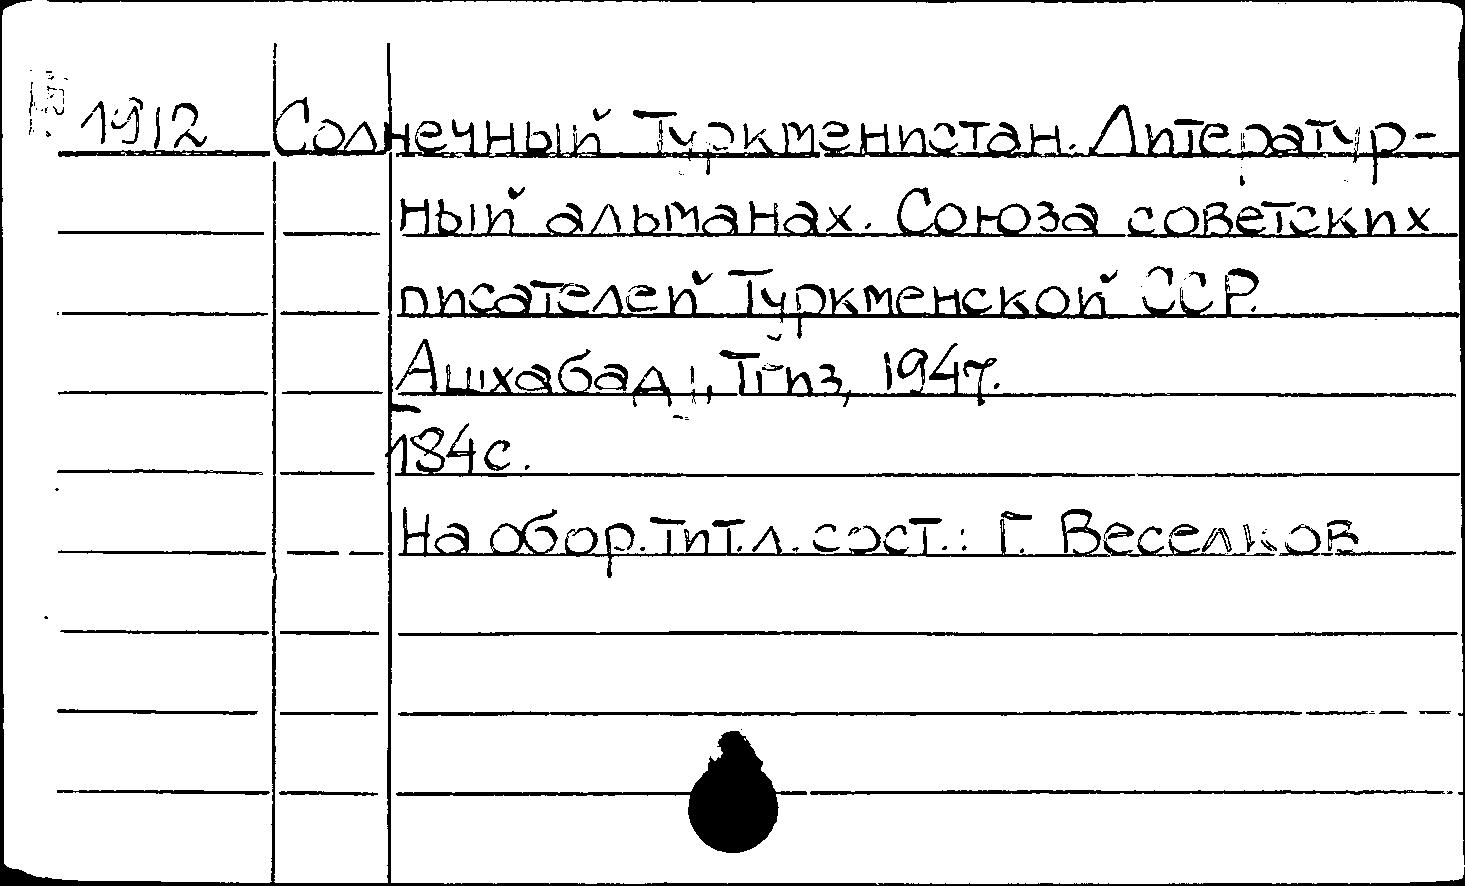 1912 Солнечный Туркменистан. Литератур-
ный альманах. Союза советских
писателей Туркменской ССР.
Ашхабад, Тгиз, 1947.
184с.
На обор. тит. л. сост.: Г. Веселков